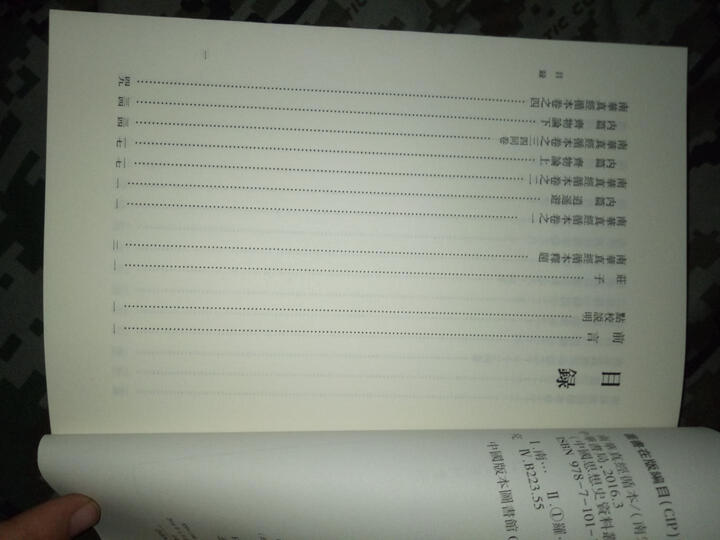 目録
前言 一
點校説明 一
莊子 一
南華真經循本釋題
南華真經循本卷之一 一
内篇 逍遥遊 一
南華真經循本卷之二 一七
内篇 齊物論上 一七
南華真經循本卷之三 四同卷 三四
内篇 齊物論下 三四
南華真經循本卷之四 四九
目録
一
圖書在版編目(CIP)
南華真經循本/(南
中華書局,2016.3
(中國思想史資料叢
ISBN 978-7-101-
Ⅰ.南… Ⅱ.①羅
Ⅳ.B223.55
中國版本圖書館